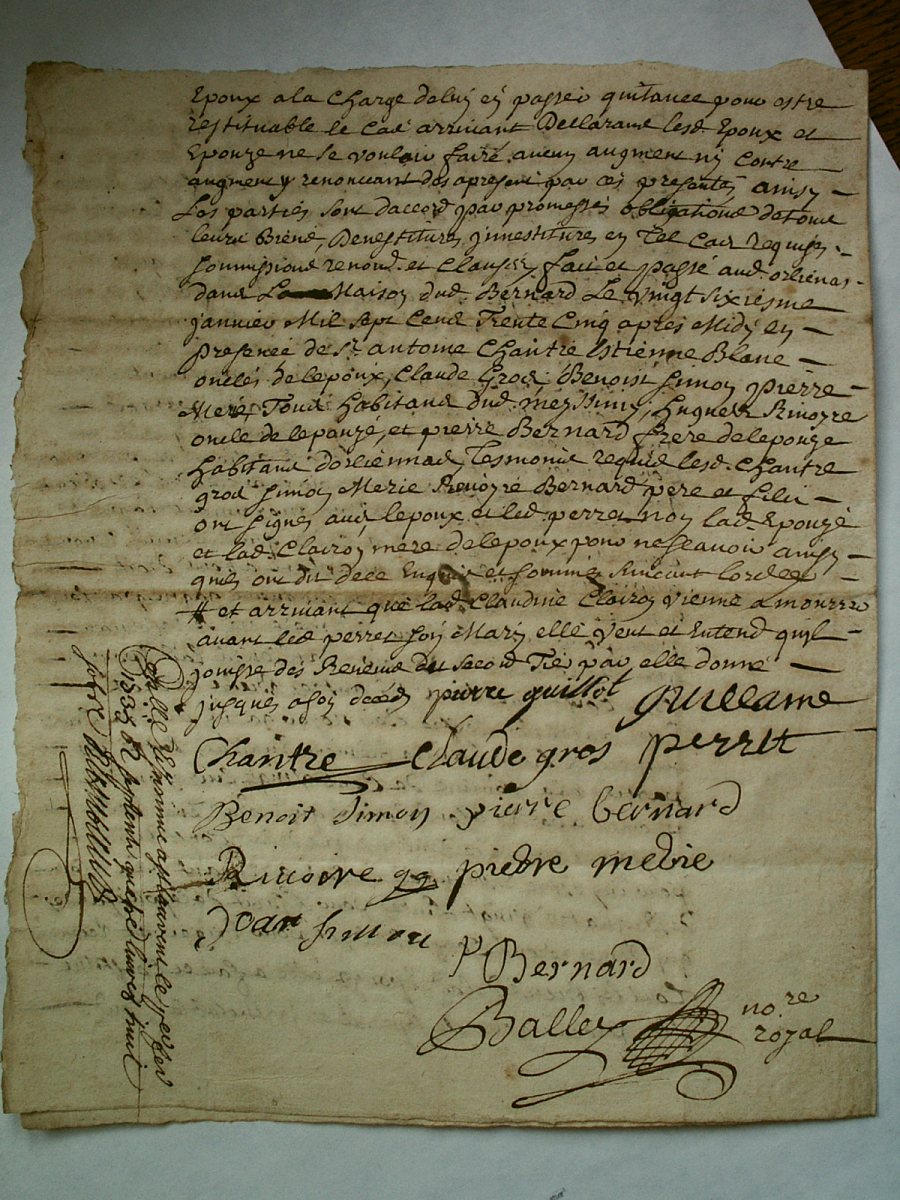 Epoux a la Charge deluy en passer quitance pour estre
restituable le Cas arrivant Declarans lesd Epoux et
Epouze ne se vouloir faire aucun augment ny Contre
augment y renonceant des apresent par ces presentes ainsy
Les parties sont daccord par promesses obligations de tous
leurs Biens, Devestitures jnvestitures en Tel Cas requises
soummissions renond. et Clauses, fait et passé aud. orlienas
dans La Maison dud. Bernard Le vingt sixiesme
janvier Mil sept Cens Trente Cinq apres Midy en
Presence de Sr. antoine Chantre Estienne Blanc
oncles de lepoux, Claude Gros, Benoist Simon pierre
Merie Tous habitans dud. Meyssimy, hugues Rivoyre
oncle de lepouze, et pierre Bernard frere de lepouze
habitans dorliennas, Tesmoins requis lesd. Chantre
gros Simon Merie Revoyre Bernard pere et fils
ont signés avec lepoux et led. perret non lad. Epouze
et lad. Clairon mere de lepoux pour ne scavoir ainsy
quils ont dit de ce Enquis et sommés suivant lordce
# et arrivant que lad. Claudine Clairon vienne a mourir
avant led. perret son Mary, elle veut et Entend quil
jouisse des Revenus du second Tie par elle donné
jusques a son deced pierre guillot guillame
Chantre Claude gros perret
Benoit Simon pierre bernard
Rivoire piedre medie
Jean simon
P Bernard
Balley no.re
royal
1735